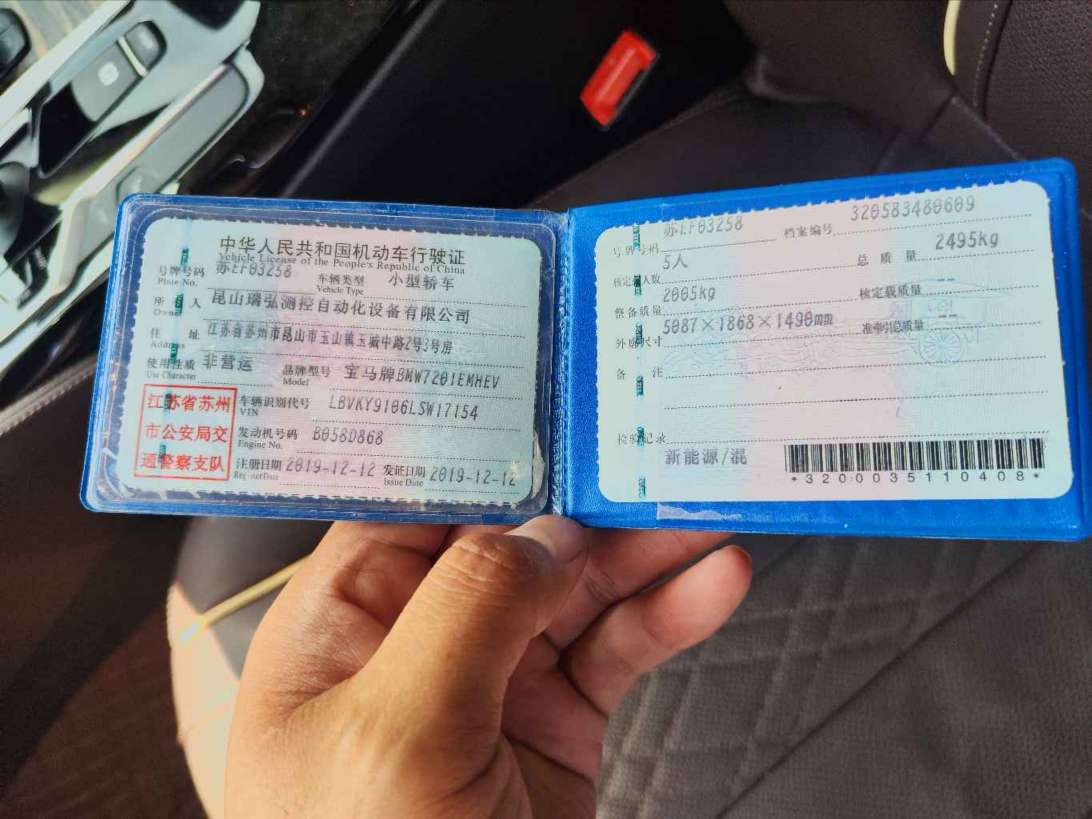 中华人民共和国机动车行驶证
Vehicle License of the People's Republic of China
号牌号码 苏EF03258 车辆类型 小型轿车
Plate No. Vehicle Type
所 有 人 昆山瑞弘测控自动化设备有限公司
Owner
住 址 江苏省苏州市昆山市玉山镇玉城中路2号3号房
Address
使用性质 非营运 品牌型号 宝马牌BMW7201EMHEV
Use Character Model
江苏省苏州
市公安局交
通警察支队
车辆识别代号 LBVKY9106LSW17154
VIN
发动机号码 B058D868
Engine No.
注册日期 2019-12-12 发证日期 2019-12-12
Register Date Issue Date
号牌号码 苏EF03258 档案编号 320583480609
核定人数 5人 总 质 量 2495kg
整备质量 2005kg 核定载质量 --
外廓尺寸 5087×1868×1490mm 准牵引总质量 --
备 注
检验记录
新能源/混
*3200035110408*